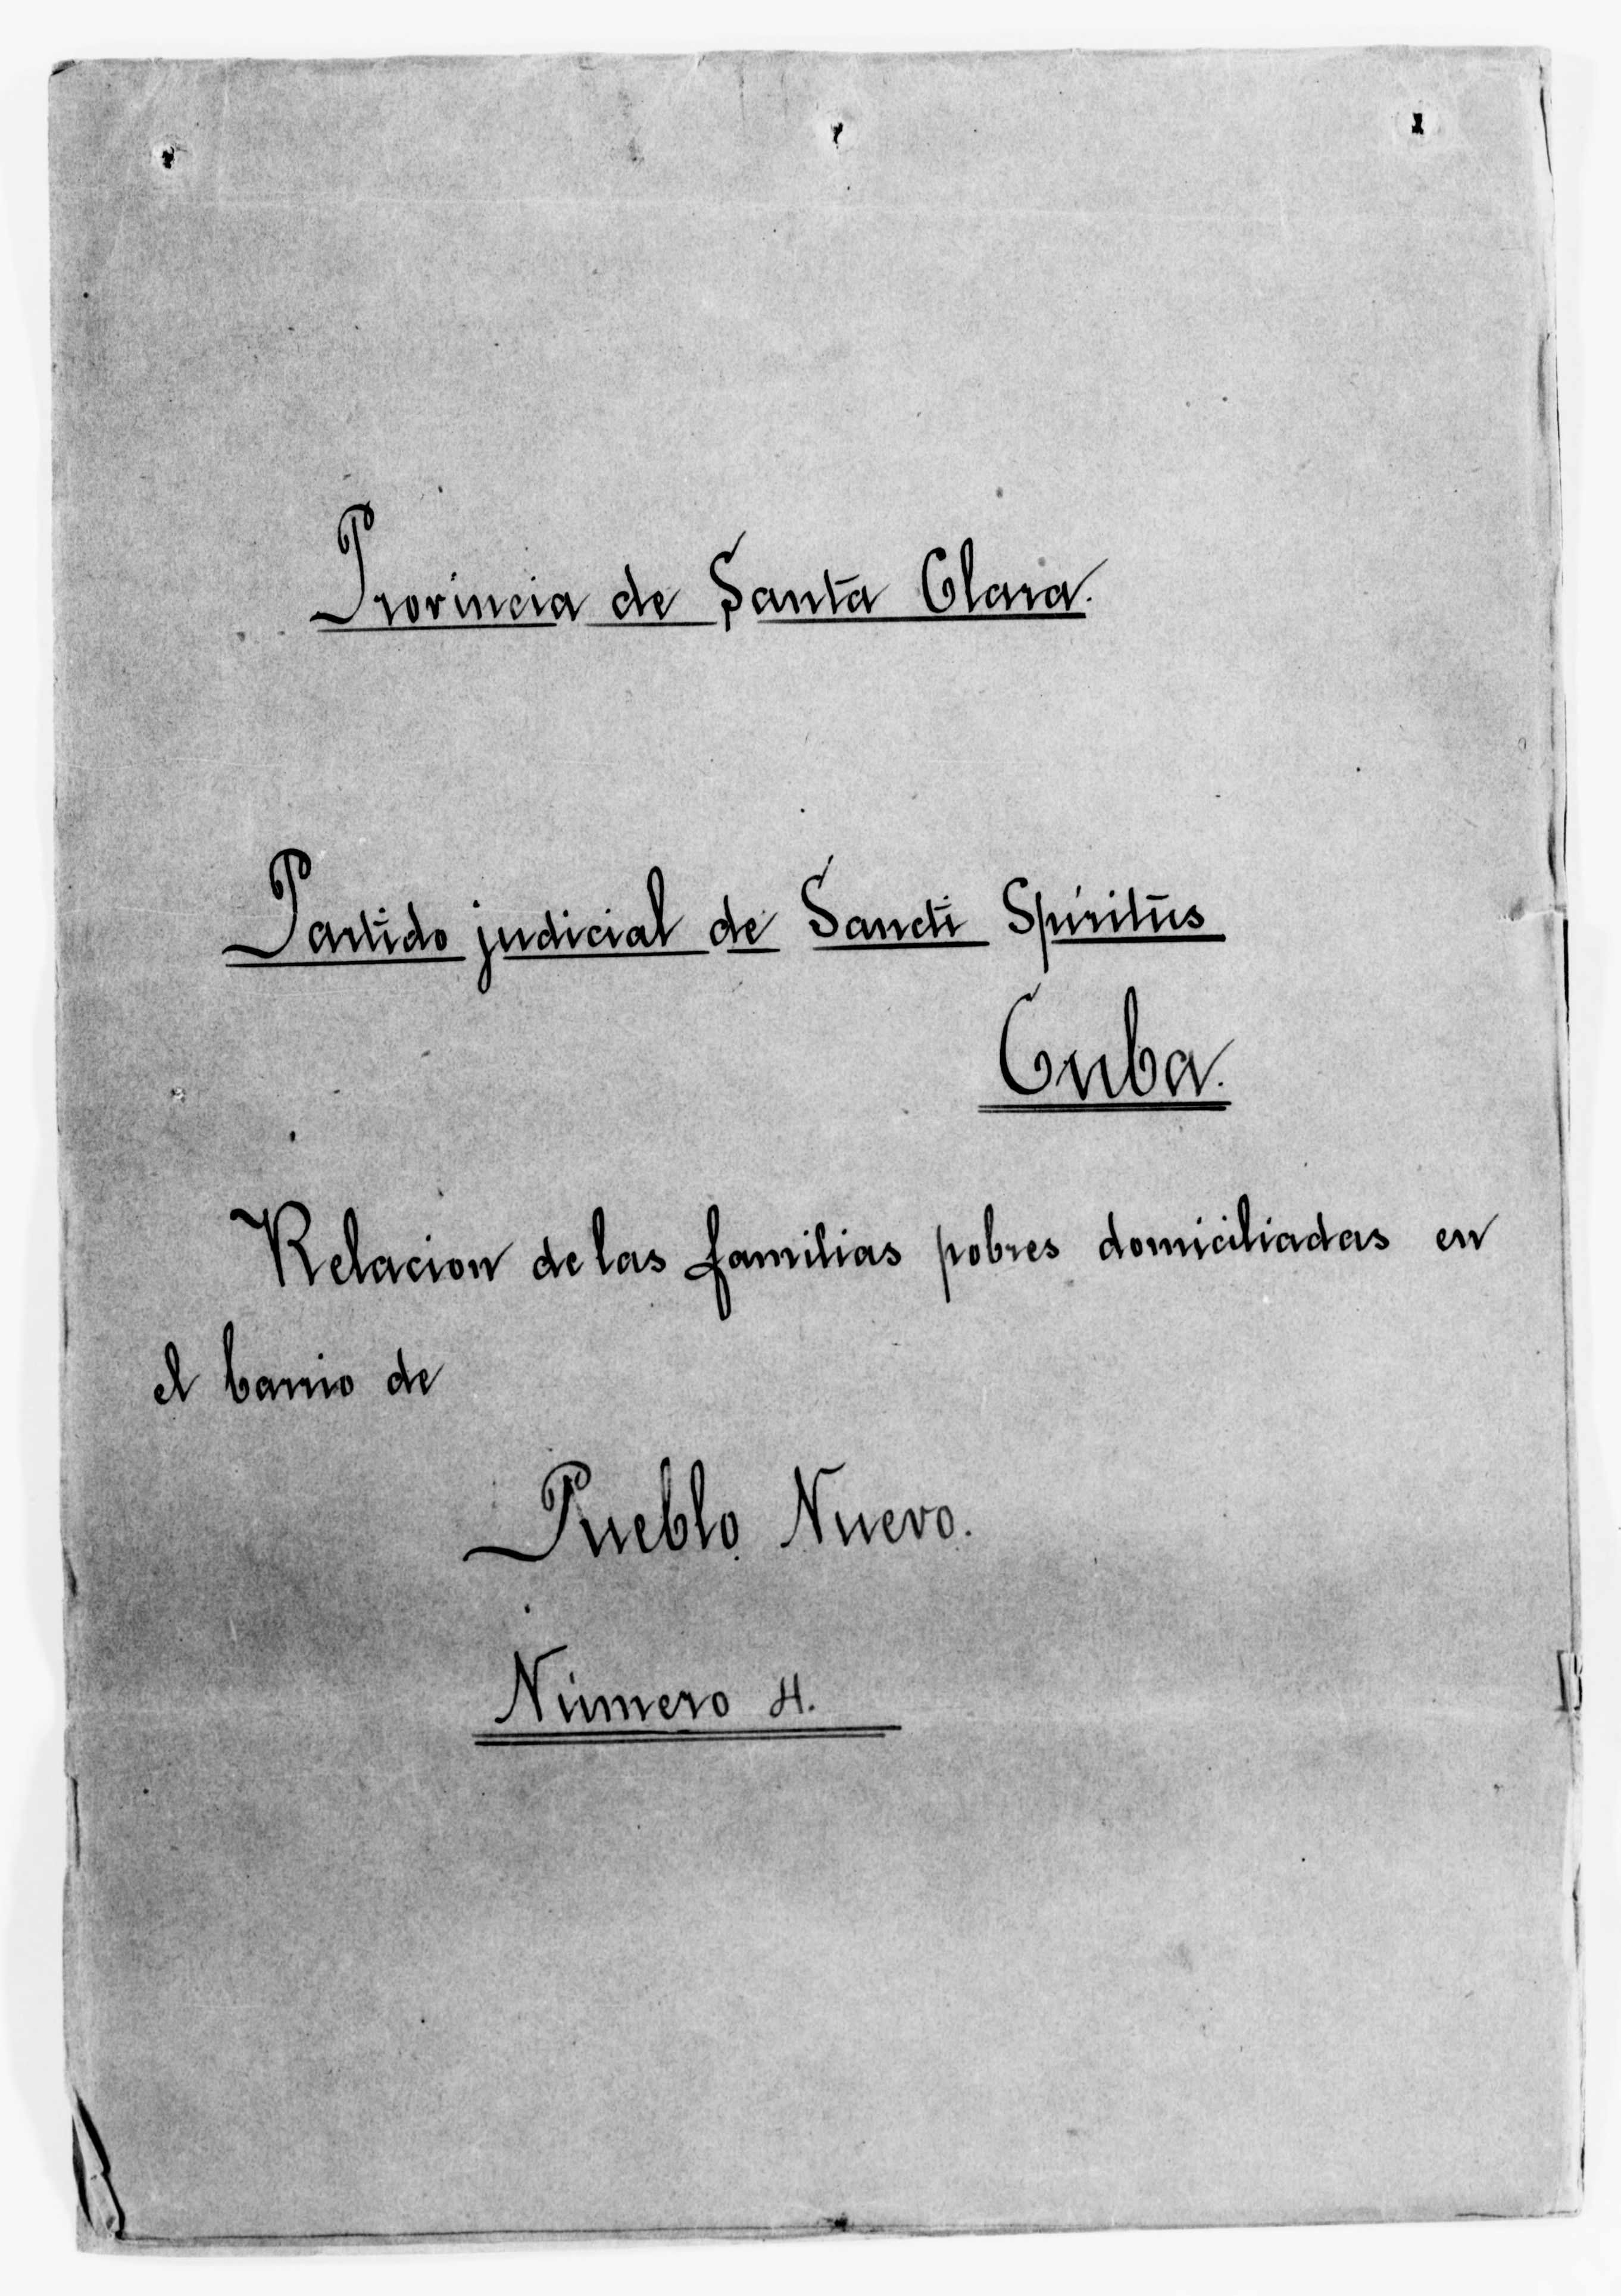 Provincia de Santa Clara.
Partido judicial de Sancti Spiritus
Cuba.
Relacion de las familias pobres domiciliadas en
el barrio de
Pueblo Nuevo.
Número 4.